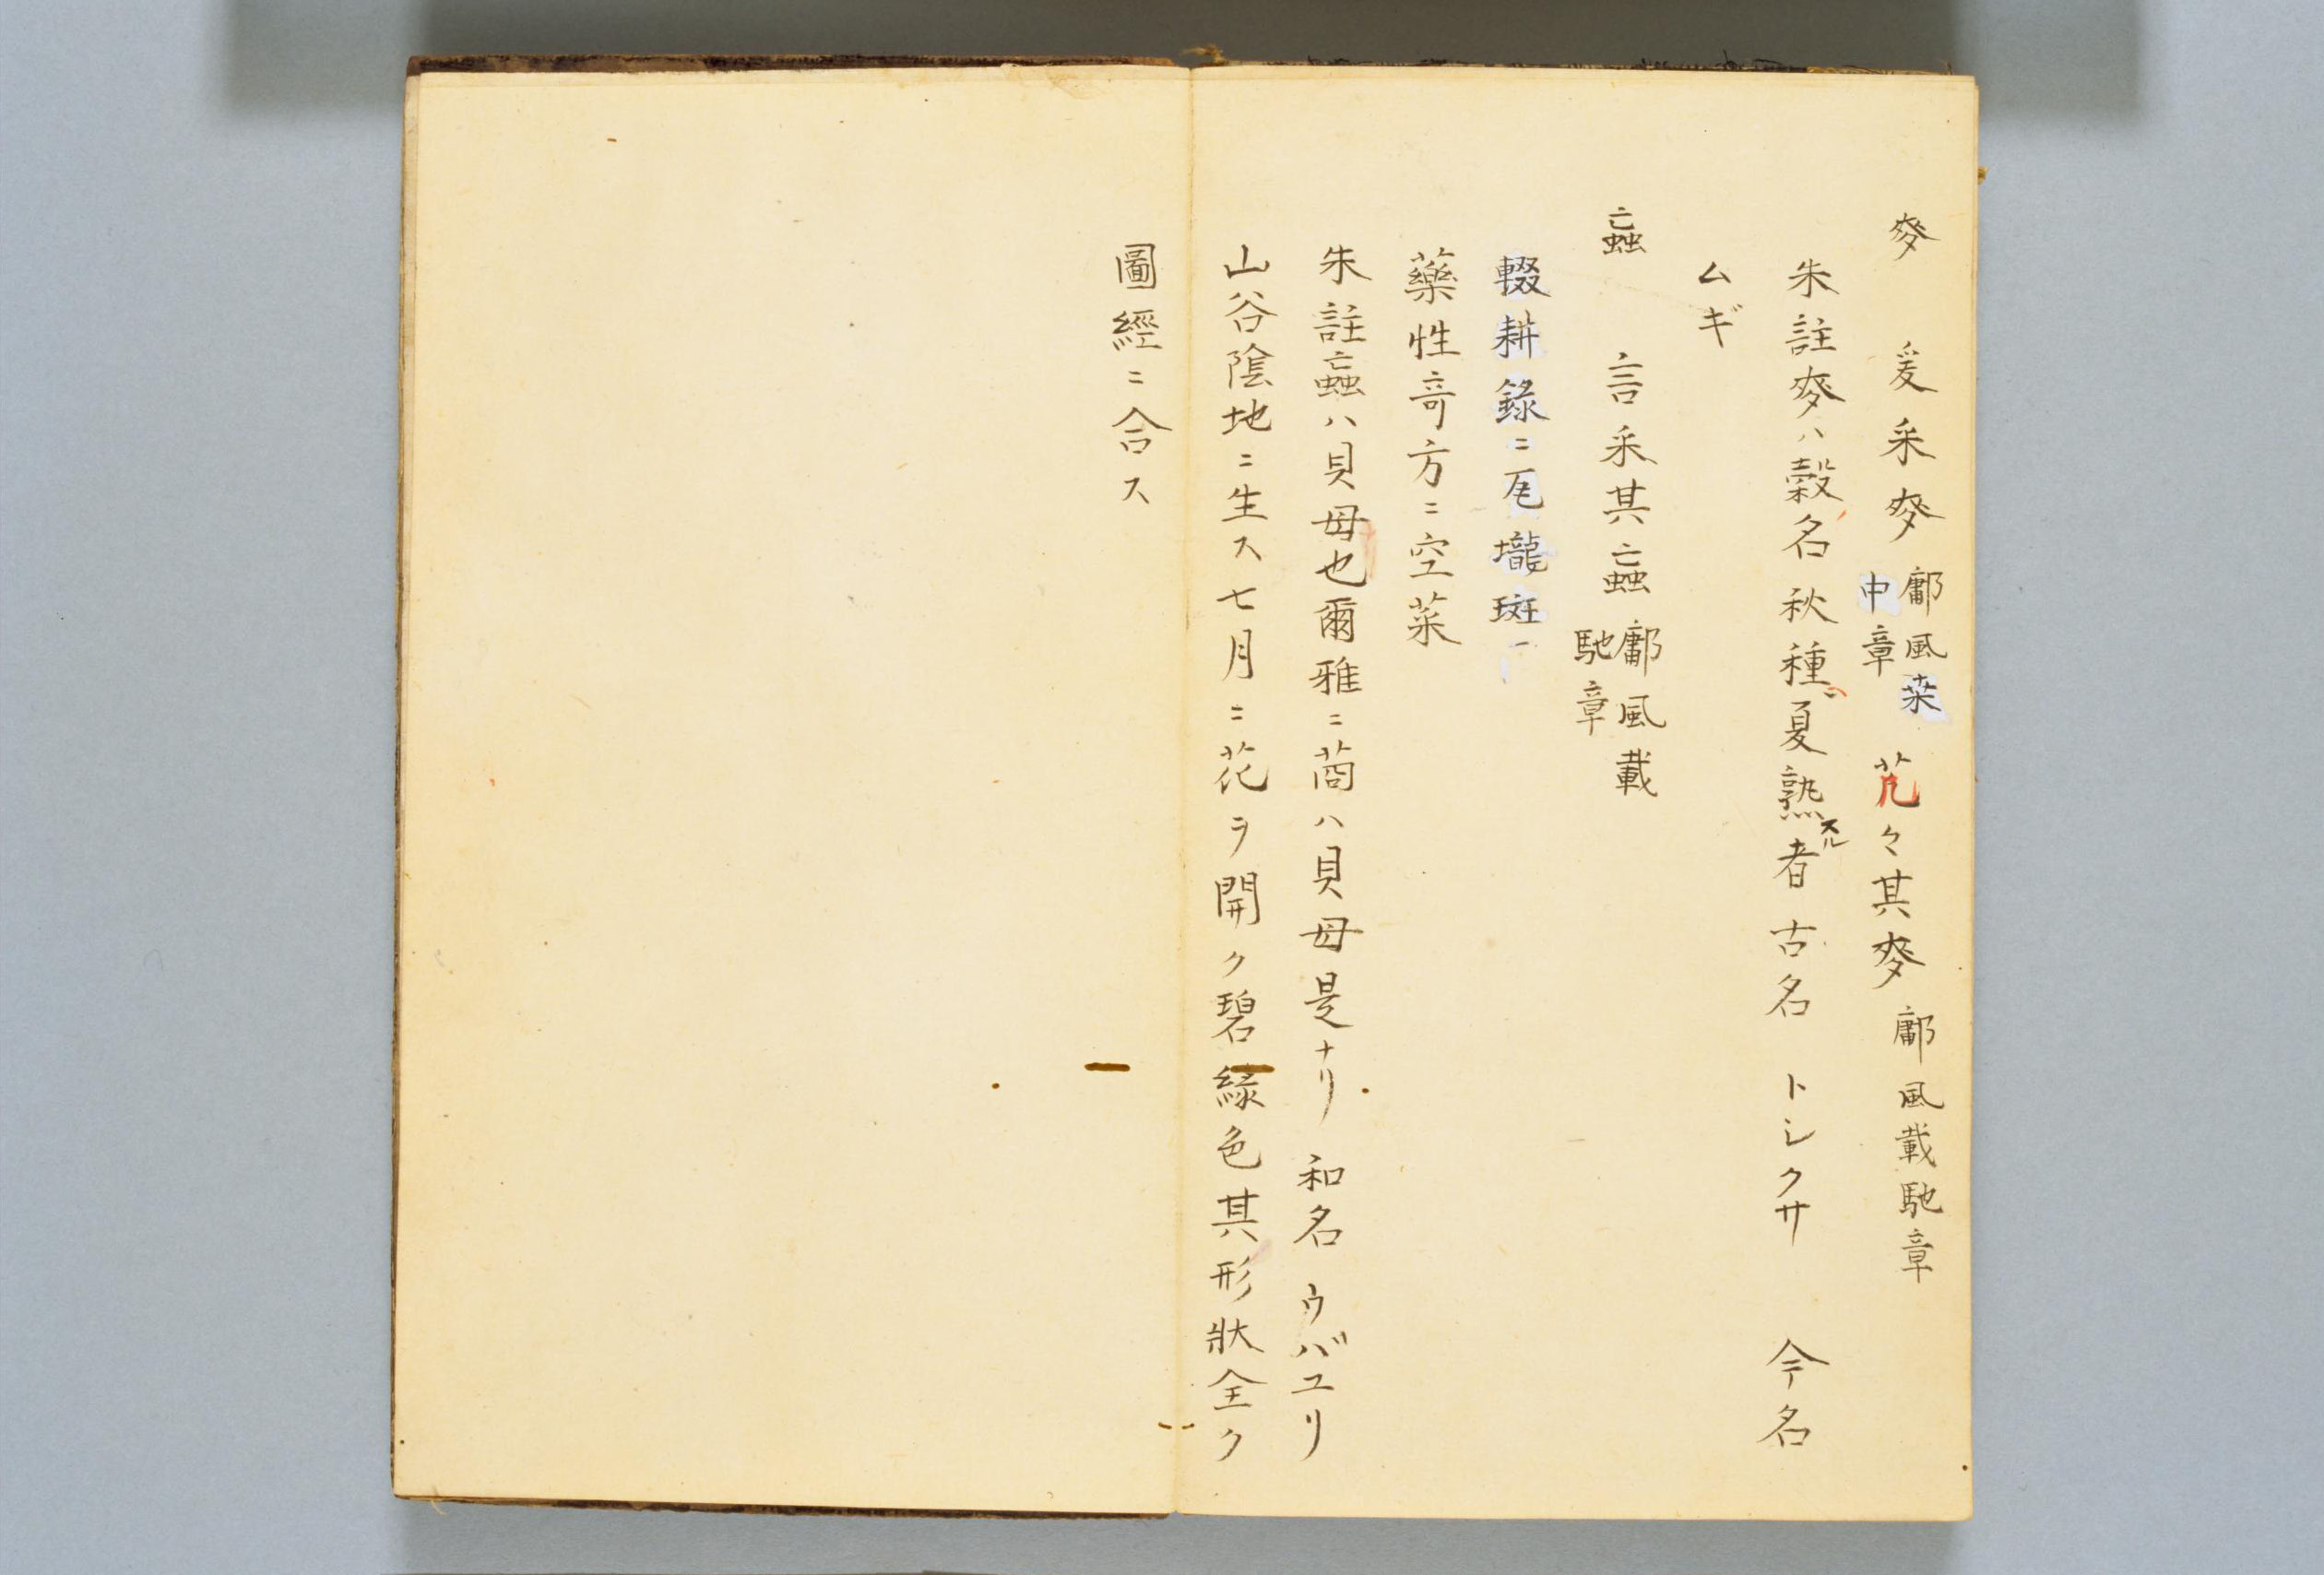 麥 爰采麥 鄘風桒中章 芃々其麥 鄘風載馳章
朱註麥ハ穀名秋種夏熟スル者古名 トシクサ 今名
ムギ
蝱 言采其蝱 鄘風載馳章
輟耕錄ニ瓦壠斑
藥性奇方ニ空菜
朱註蝱ハ貝母也爾雅ニ莔ハ貝母是ナリ 和名 ウバユリ
山谷陰地ニ生ス七月ニ花ヲ開ク碧緑色其形狀全ク
圖經ニ合ス